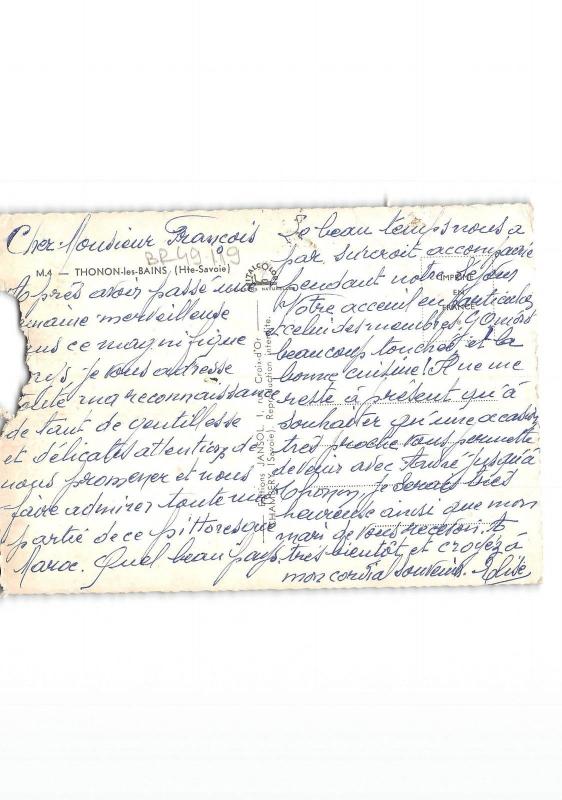 Cher Monsieur François
BR49-119
M.4 — THONON-les-BAINS (Hte-Savoie)
Après avoir passé une
maine merveilleuse
ns ce magnifique
ys, je vous adresse
ute ma reconnaissance
de tant de gentillesse
et délicates attentions de
nous promener et nous
faire admirer toute une
partie de ce pittoresque
Maroc. Quel beau pays,
Editions JANSOL, 1, rue Croix-d'Or
CHAMBERY (Savoie). Reproduction interdite.
IMPRIMÉ
EN
FRANCE
Le beau temps nous a
par surcroit accompagné
pendant notre séjour
Votre accueil en particulier
celui des membres
beaucoup touchés et la
bonne cuisine! Il ne me
reste à présent qu'à
souhaiter qu'une occasion
très proche vous permette
de venir avec André jusqu'à
Thonon, je serais très
heureuse ainsi que mon
mari de vous recevoir. A
très bientôt, et croyez à
mon cordial souvenir. Elise